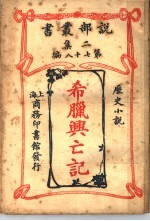 說部叢書
二集
第七十八編
歷史小說
希臘興亡記
上海
商務印書館發行